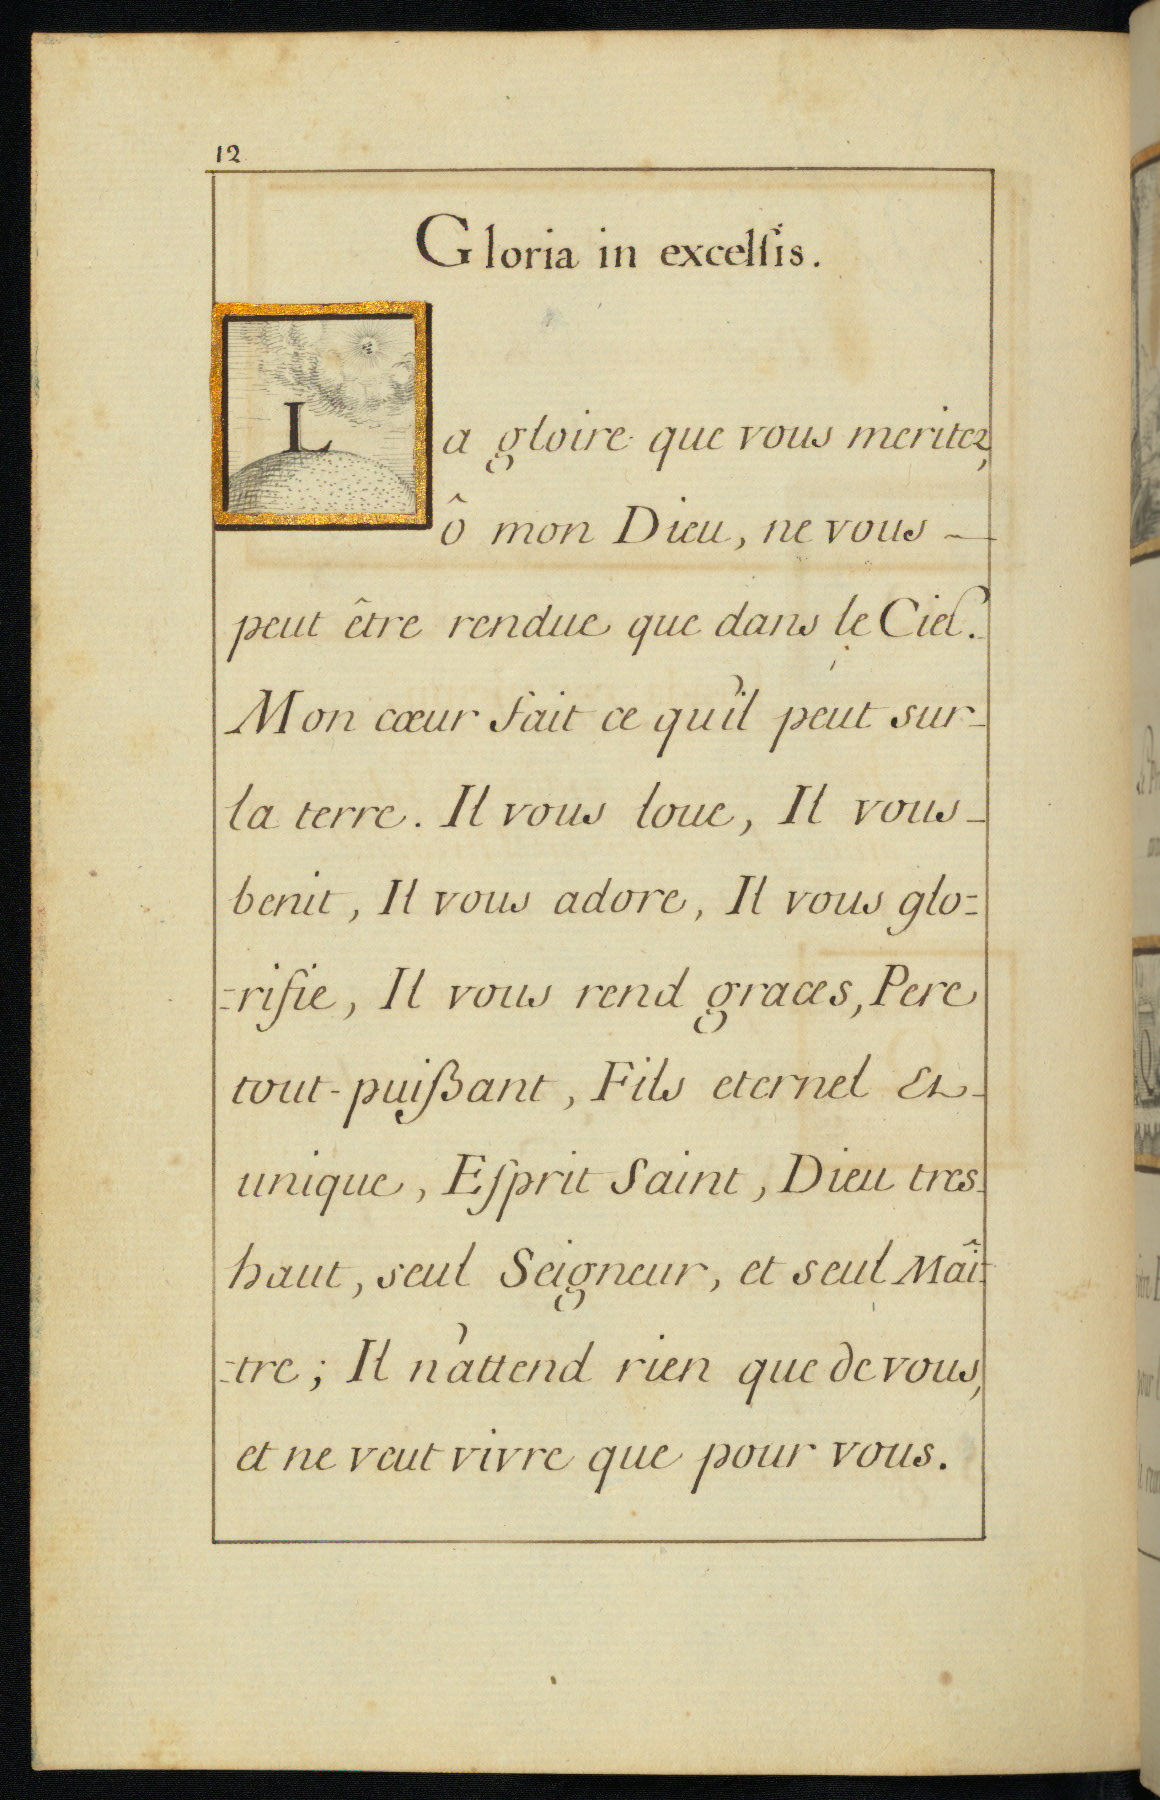 12
Gloria in excelſis.
La gloire que vous meritez,
ô mon Dieu, ne vous —
peut être rendue que dans le Ciel.
Mon cœur fait ce qu'il peut sur-
la terre. Il vous loue, Il vous-
benit, Il vous adore, Il vous glo=
=rifie, Il vous rend graces, Pere
tout-puißant, Fils eternel Et-
unique, Eſprit Saint, Dieu tres-
haut, seul Seigneur, et seul Maî=
=tre; Il n'attend rien que de vous,
et ne veut vivre que pour vous.